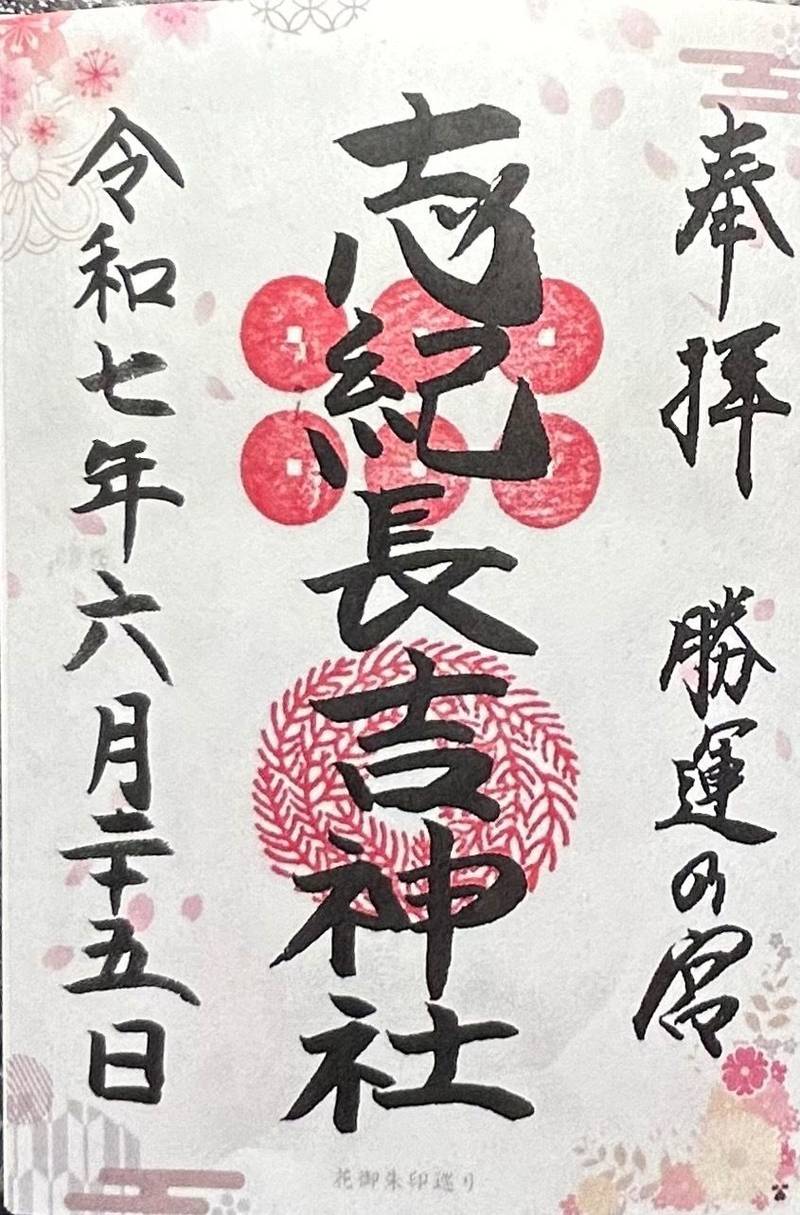 奉拝 勝運の宮
志紀長吉神社
令和七年六月二十五日
花御朱印巡り